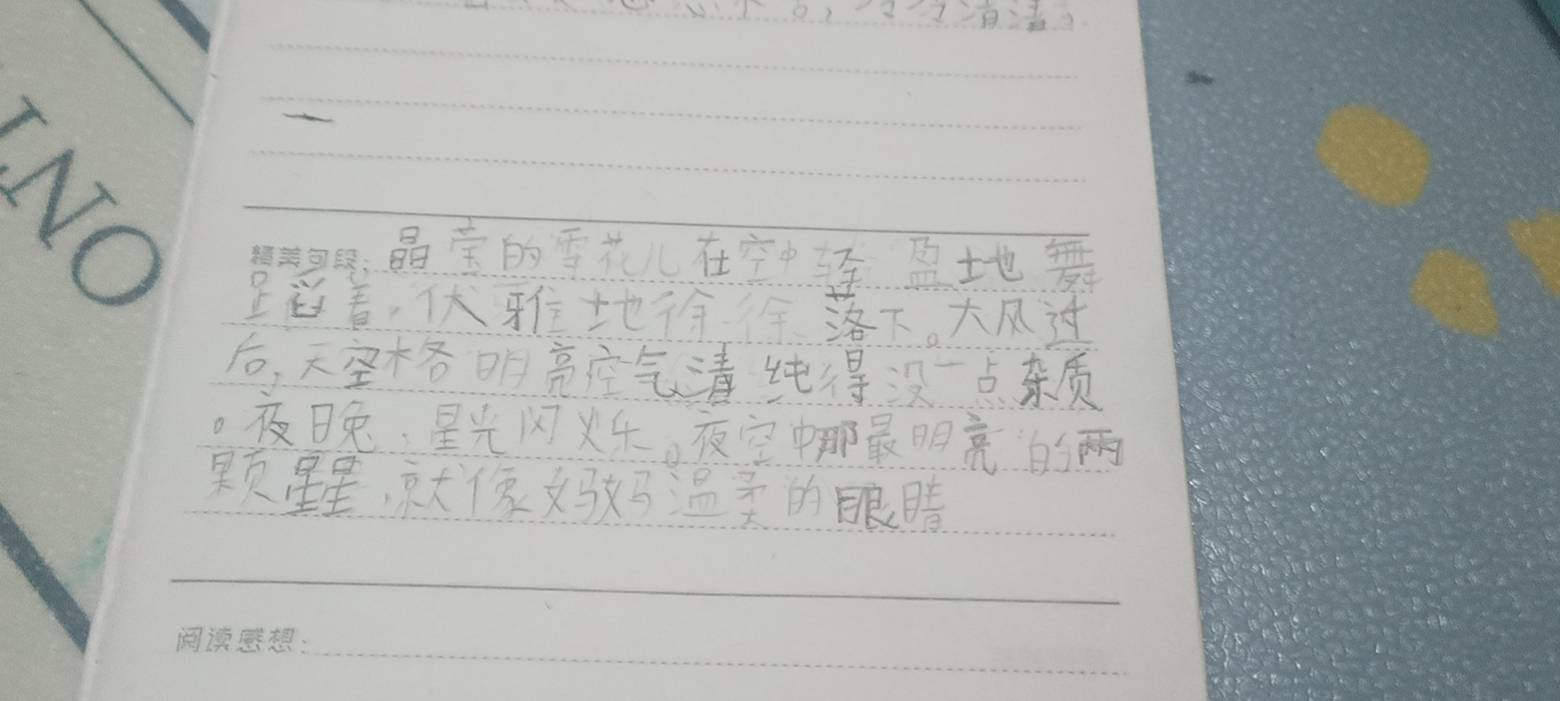 ONT
清清。
精美句段：晶莹的雪花儿在空中轻盈地舞
蹈着，伏雅地徐徐落下。大风过
后，天空格明亮空气清纯得没一点杂质
。夜晚，星光闪烁。夜空中那最明亮的两
颗星星，就像妈妈温柔的眼睛
阅读感想：